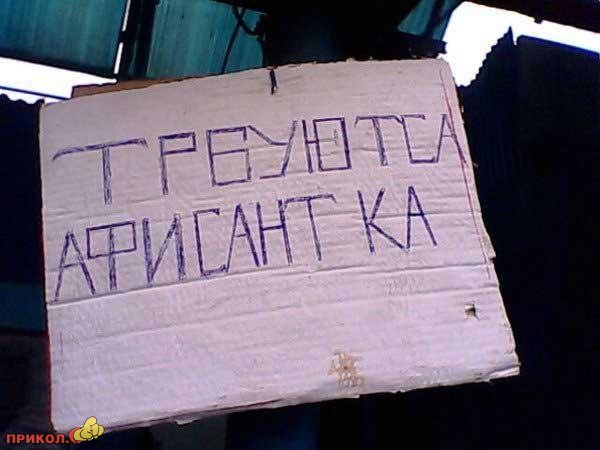 ТРБУЮТСА
АФИСАНТ КА
ПРИКОЛ.